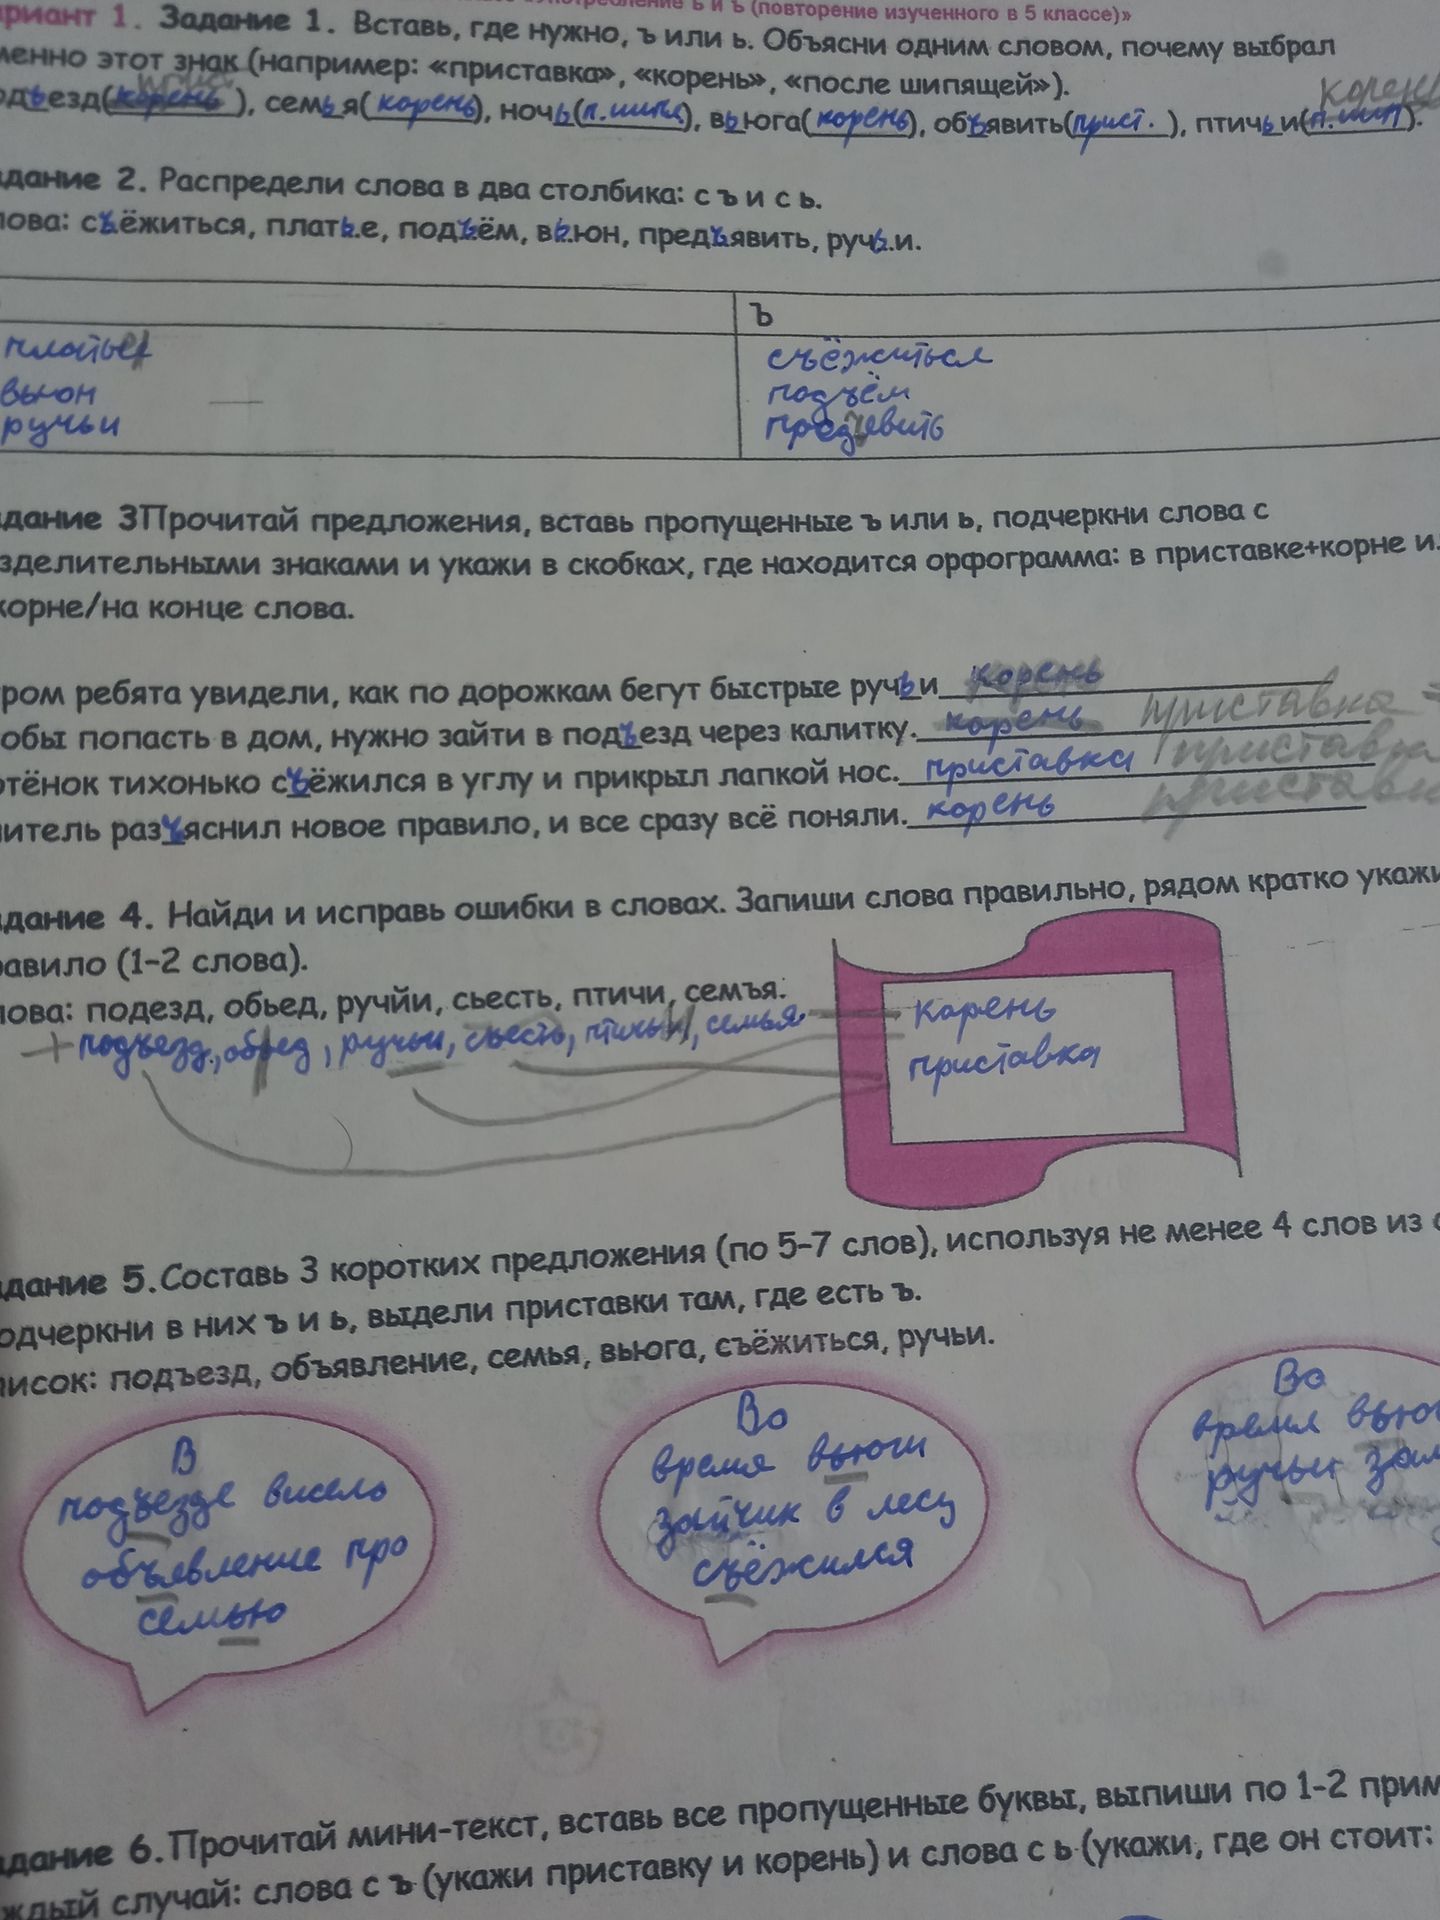 ариант 1. Задание 1. Вставь, где нужно, ъ или ь. Объясни одним словом, почему выбрал
менно этот знак (например: «приставка», «корень», «после шипящей»).
одъезд(корень), семья(корень), ночь(п.шипя), вьюга(корень), объявить(прист.), птичьи(п.шип).
корень
дание 2. Распредели слова в два столбика: с ъ и с ь.
лова: съёжиться, платье, подъём, вьюн, предъявить, ручьи.
Ъ
платье съёжиться
вьюн подъём
ручьи предъявить
дание 3Прочитай предложения, вставь пропущенные ъ или ь, подчеркни слова с
зделительными знаками и укажи в скобках, где находится орфограмма: в приставке+корне ил
корне/на конце слова.
ром ребята увидели, как по дорожкам бегут быстрые ручьи корень
обы попасть в дом, нужно зайти в подъезд через калитку. корень приставка
отёнок тихонько съёжился в углу и прикрыл лапкой нос. приставка приставка
итель разъяснил новое правило, и все сразу всё поняли. корень приставка
дание 4. Найди и исправь ошибки в словах. Запиши слова правильно, рядом кратко укажи
равило (1-2 слова).
лова: подезд, обьед, ручйи, сьесть, птичи, семъя.
подъезд, обед, ручьи, съесть, птичьи, семья.
корень
приставка
дание 5.Составь 3 коротких предложения (по 5-7 слов), используя не менее 4 слов из с
одчеркни в них ъ и ь, выдели приставки там, где есть ъ.
писок: подъезд, объявление, семья, вьюга, съёжиться, ручьи.
В
подъезде висело
объявление про
семью
Во
время вьюги
зайчик в лесу
съёжился
Во
время вьюг
ручьи зам
дание 6.Прочитай мини-текст, вставь все пропущенные буквы, выпиши по 1-2 прим
ждый случай: слова с ъ (укажи приставку и корень) и слова с ь (укажи, где он стоит: